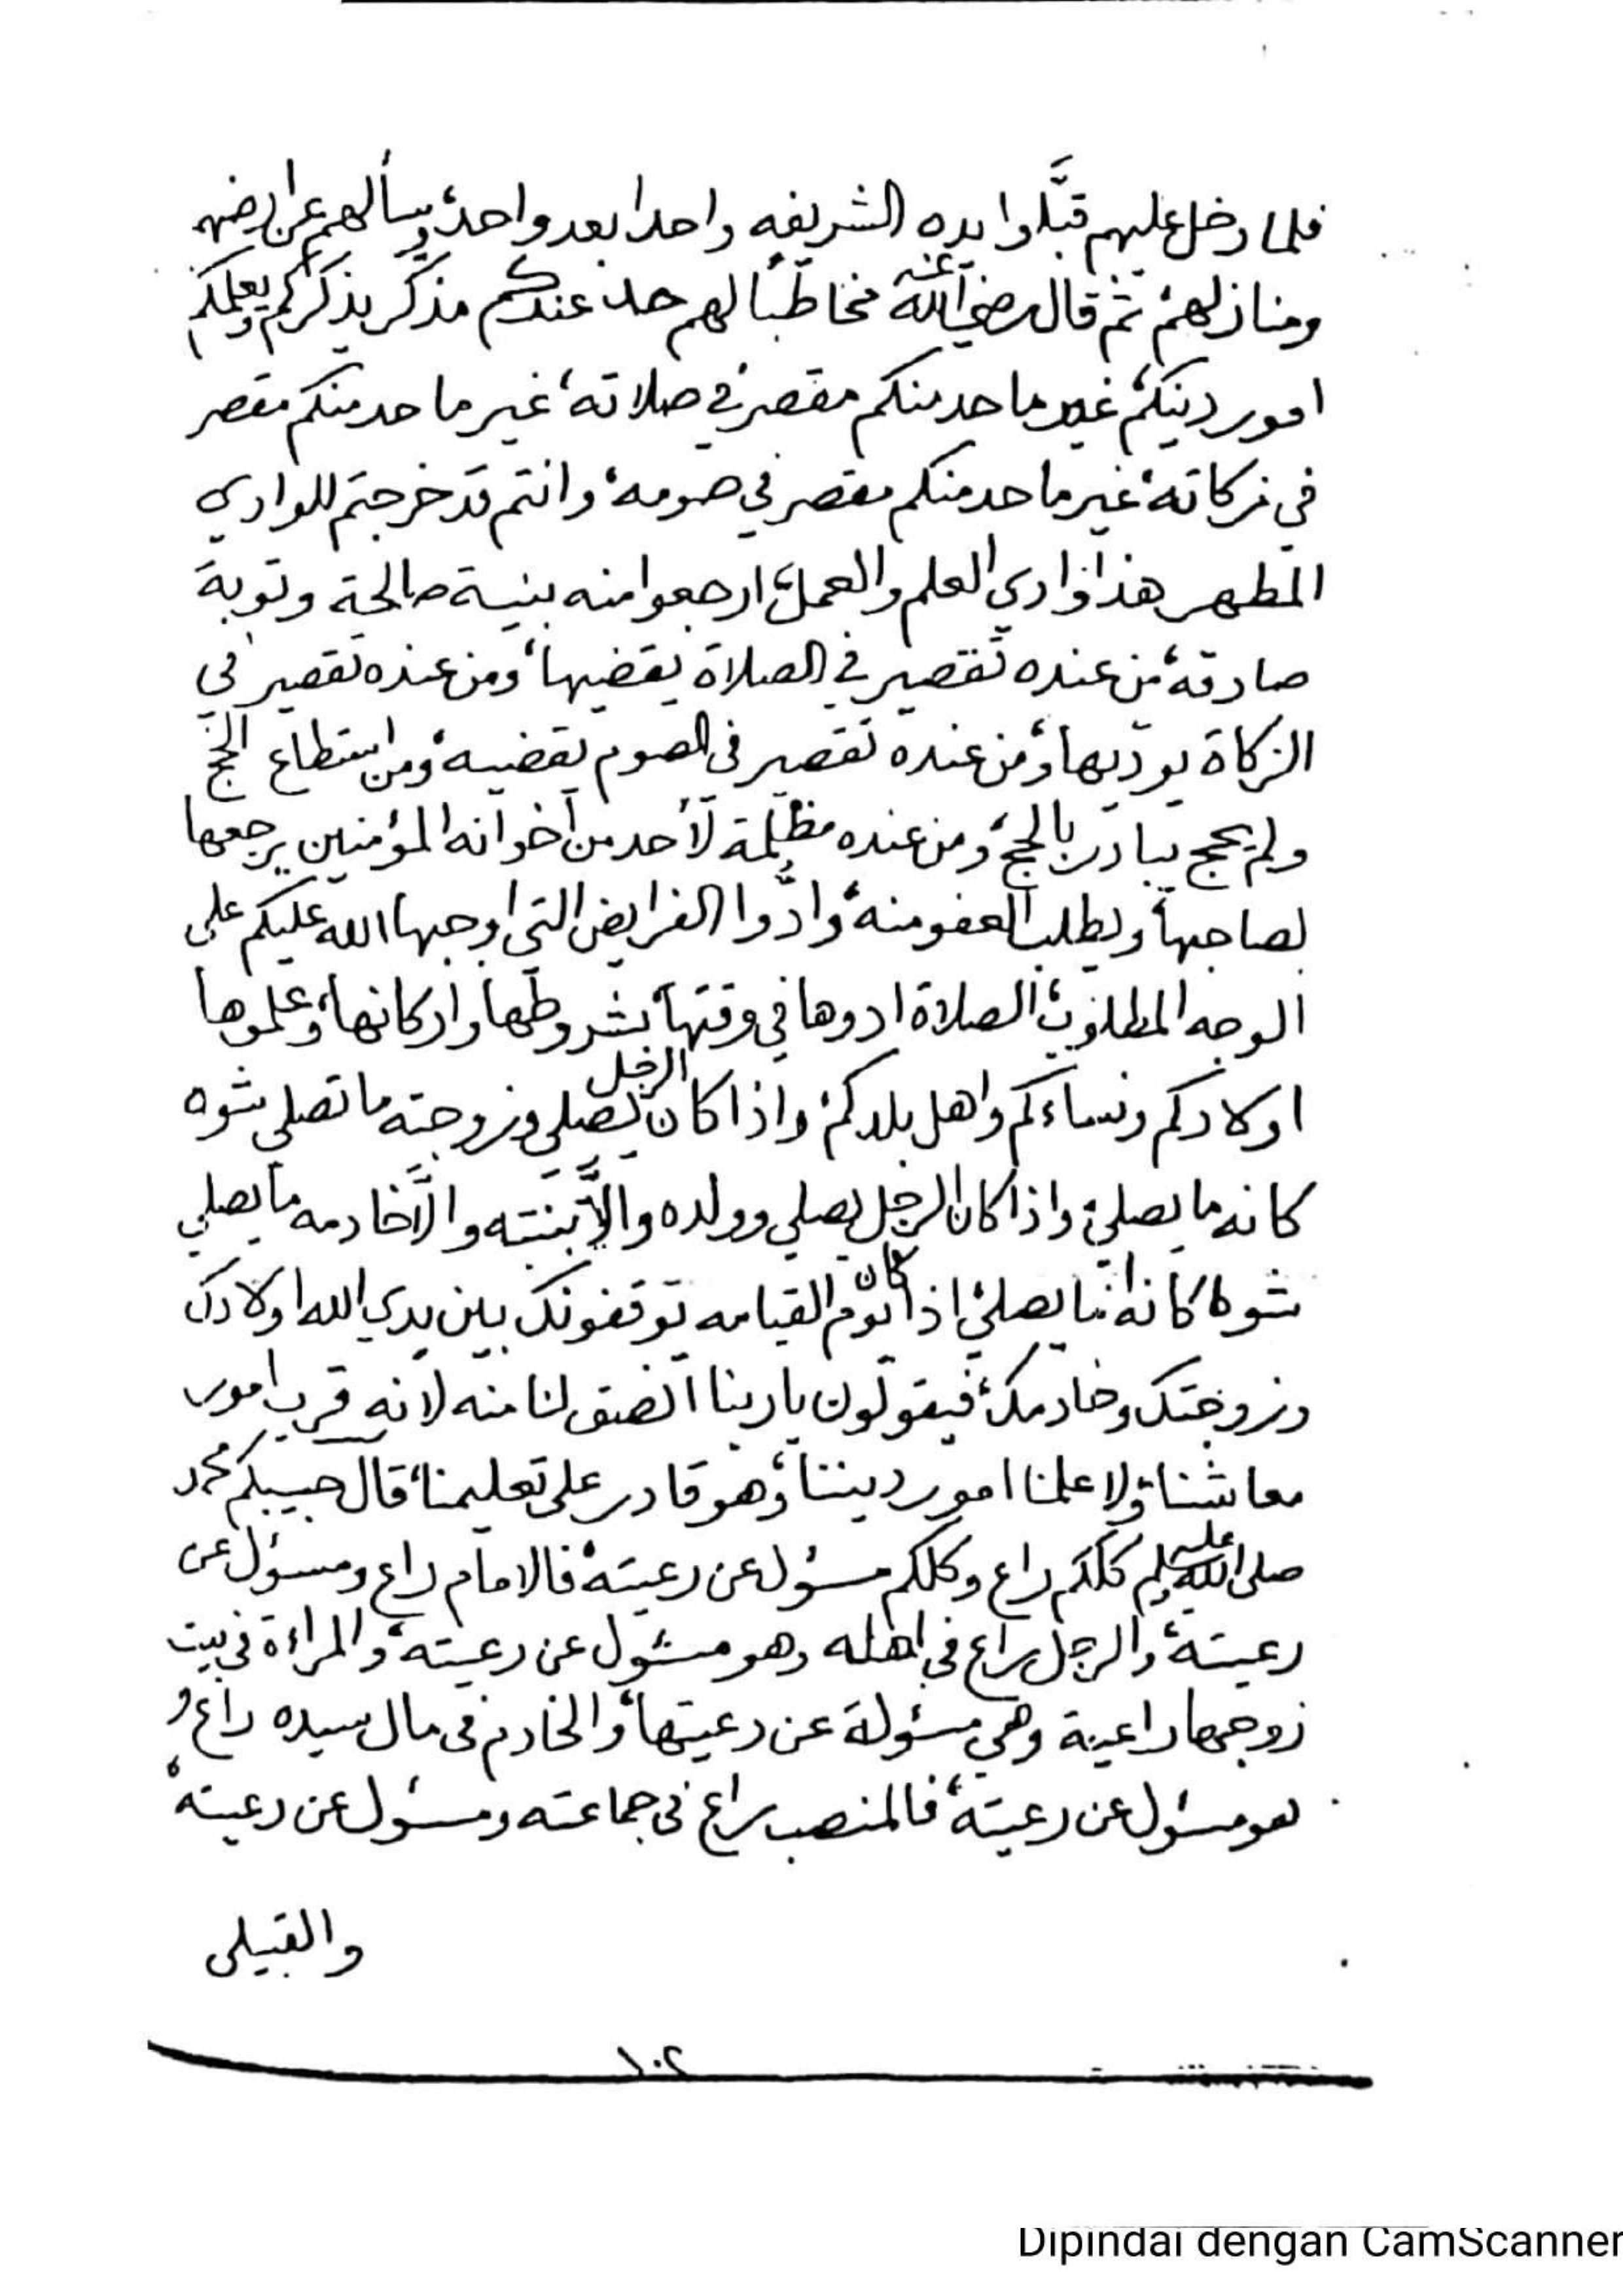 فلما دخل عليهم قبَّلوا يده الشريفه واحدا بعد واحد، وسألهم عن ارضهم
ومنازلهم، ثم قال رضي الله عنه مخاطبًا لهم حد عندكم مذكر يذكركم ويعلمكم
امور دينكم، غير ما حد منكم مقصر في صلاته، غير ما حد منكم مقصر
في زكاته، غير ما حد منكم مقصر في صومه، وانتم قد خرجتم للوادي
المطهر هذا وادي العلم والعمل، ارجعوا منه بنية صالحة وتوبة
صادقة، من عنده تقصير في الصلاة يقضيها، ومن عنده تقصير في
الزكاة يوديها، ومن عنده تقصير في الصوم يقضيه، ومن استطاع الحج
ولم يحج يبادر بالحج، ومن عنده مظلمة لأحد من اخوانه المؤمنين يرجعها
لصاحبها، ويطلب العفو منه، وادُّوا الفرايض التي اوجبها الله عليكم على
الوجه المطلوب، الصلاة ادوها في وقتها، بشروطها واركانها، وعلموها
اولادكم ونساءكم واهل بلدكم، واذا كان الرجل يصلي وزوجته ما تصلي شوه
كانه ما يصلي، واذا كان الرجل يصلي وولده والَّا بنته والَّا خادمه ما يصلي
شوه كانه ما يصلي، اذا كان يوم القيامه توقفونك بين يدي الله اولادك
وزوجتك وخادمك، فيقولون ياربنا انصف لنا منه لانه قرب امور
معاشنا، ولا علمنا امور ديننا، وهو قادر على تعليمنا، قال حبيبكم محمد
صلى الله عليه وسلم كلكم راع وكلكم مسؤل عن رعيته، فالامام راع ومسؤل عن
رعيته، والرجل راع في اهله وهو مسئول عن رعيته، والمراءة في بيت
زوجها راعية وهي مسئولة عن رعيتها، والخادم في مال سيده راع و
هو مسئول عن رعيته، فالمنصب راع في جماعته ومسئول عن رعيته،
والقبيلى
١٠٢
Dipindai dengan CamScanner